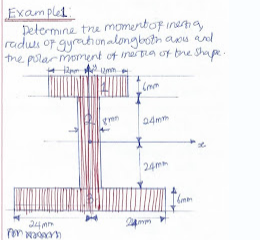 Example 1.
Determine the moment of inertia,
radius of gyration along both axis and
the polar moment of inertia of the shape.
12mm y 12mm
1 6mm
2 8mm 24mm
x
24mm
3 6mm
24mm 24mm